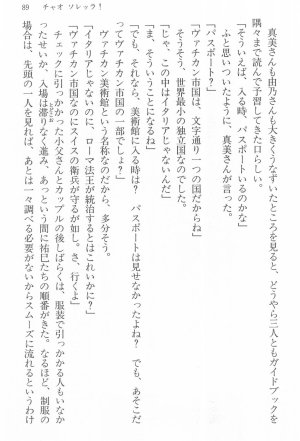 89 チャオ ソレッラ！
真美さんも由乃さんも大きくうなずいたところを見ると、どうやら三人ともガイドブックを
隅々まで読んで予習してきた口らしい。
「そういえば、入る時、パスポートいるのかな」
ふと思いついたように、真美さんが言った。
「パスポート？」
「ヴァチカン市国は、文字通り一つの国だからね」
そうそう、世界最小の独立国なのでした。
「じゃ、この中はイタリアじゃないんだ」
「ま、そういうことになるね」
「でも、それなら、美術館に入る時は？　パスポートは見せなかったよね？　でも、あそこだ
ってヴァチカン市国の一部でしょ？」
ヴァチカン美術館という名称なのだから、多分そう。
「イタリアじゃないのに、ローマ法王が統治するとはこれいかに？」
「ヴァチカン市国なのにスイスの衛兵が守るが如し。さ、行くよ」
チェックに引っかかった小父さんとカップルの後しばらくは、服装で引っかかる人もいなか
ったせいか、入場は滞りなく進み、あっという間に祐巳たちの順番がきた。なるほど、制服の
場合は、先頭の一人を見れば、あとは一々調べる必要がないからスムーズに流れるというわけ